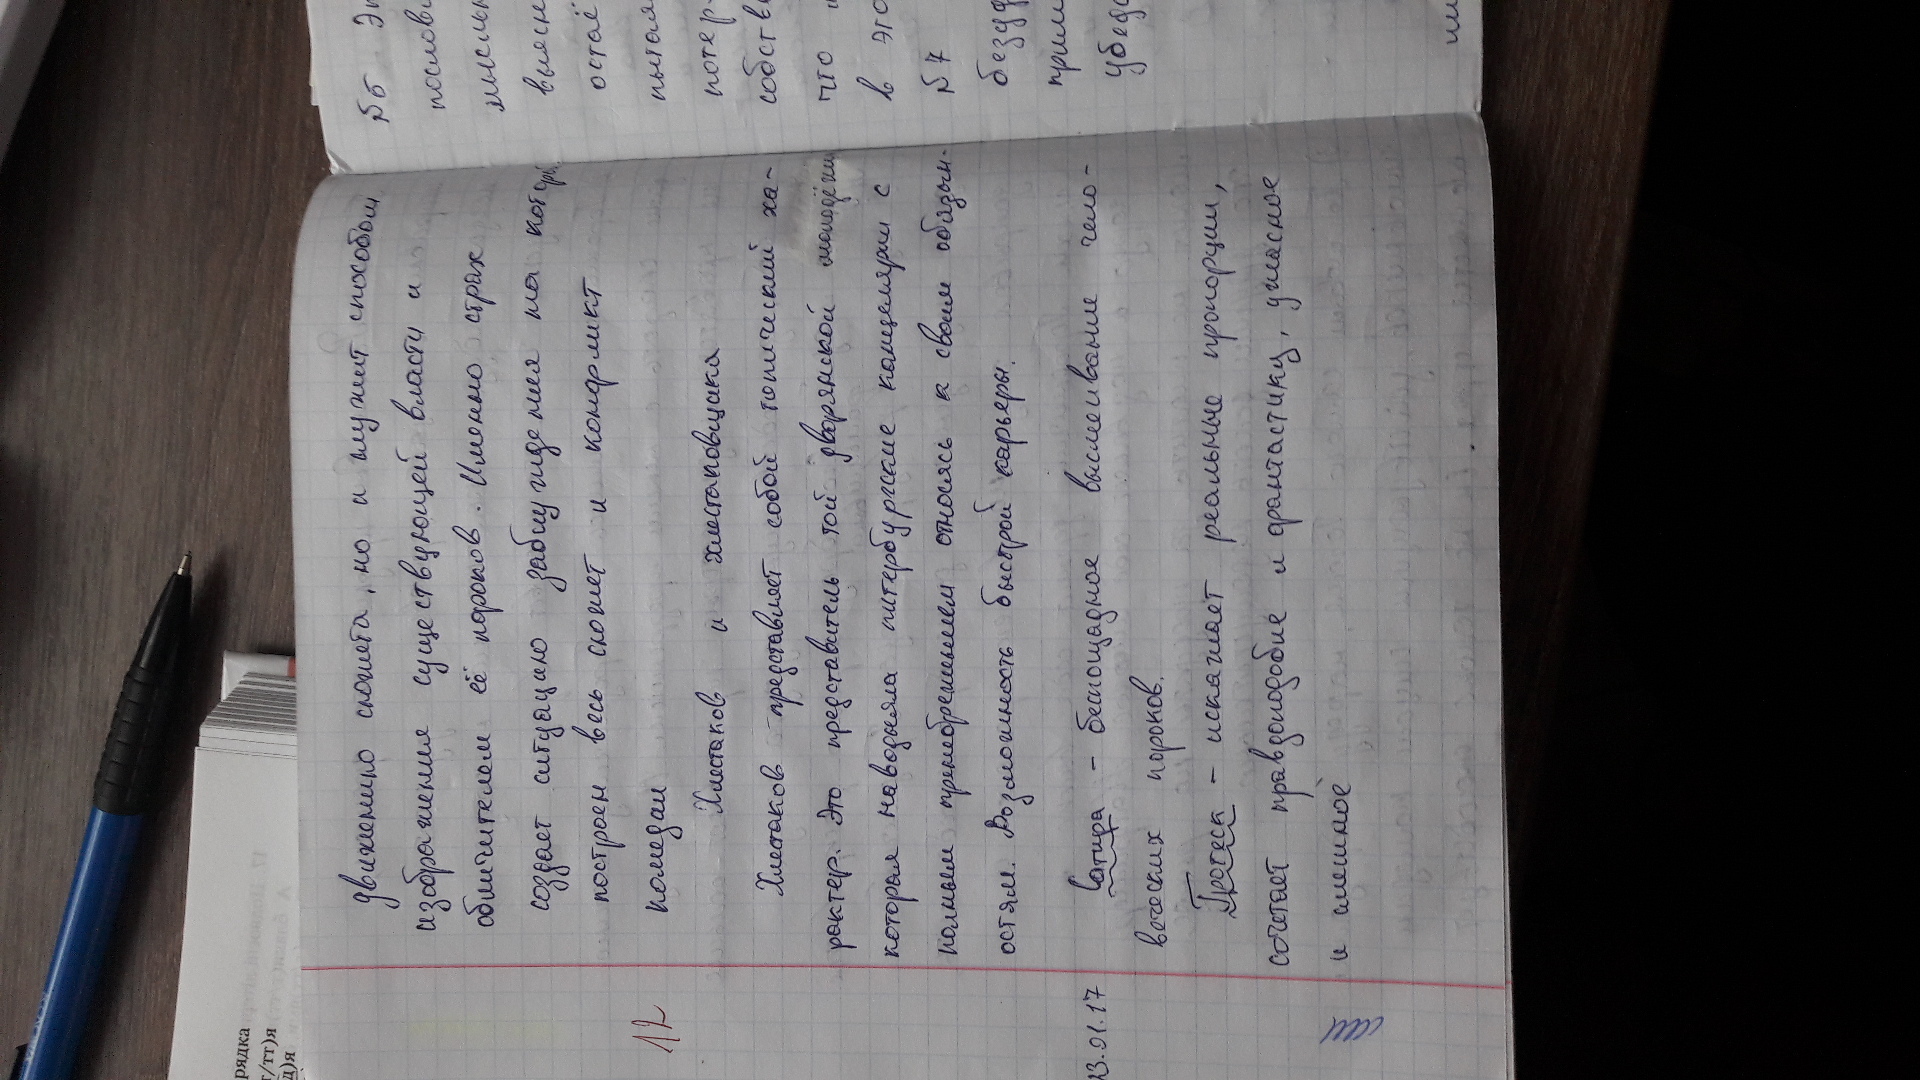 движению сюжета, но и служит способом
изображения существующей власти и
обличителем её пороков. Именно страх
создает ситуацию заблуждения на котор
построен весь сюжет и конфликт
комедии
12
Хлестаков и хлестаковщика
Хлестаков представляет собой типический ха-
рактер. Это представитель той дворянской молодёжи
которая наводняла питербургские канцелярии с
полным пренебрежением относясь к своим обязан-
остям. Возможность быстрой карьеры.
23.01.17
Сатира - беспощадное высмеивание чело-
веческих пороков.
Гротеск - искажает реальные пропорции,
сочетает правдоподобие и фантастику, ужасное
и смешное
№6 Эт
послови
мысль
выясн
остаё
пытая
потер
собств
что
в это
№7
безуд
прим
убед
рядка
т/тт)я
д)я